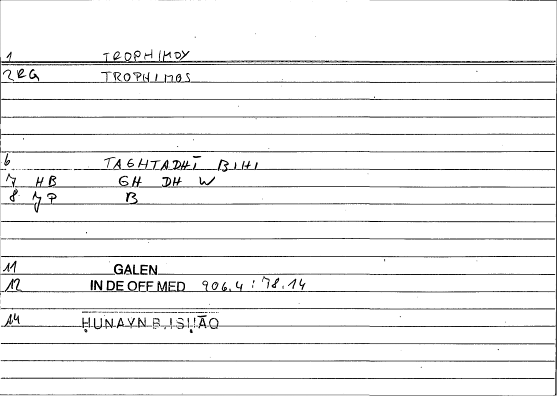 1 TROPHIMOY
2 RG TROPHIMOS
6 TAGHTADHĪ BIHI
7 HB GH DH W
8 7P B
11 GALEN
12 IN DE OFF MED 906.4 : 78.14
14 ḤUNAYN B. ISḤĀQ